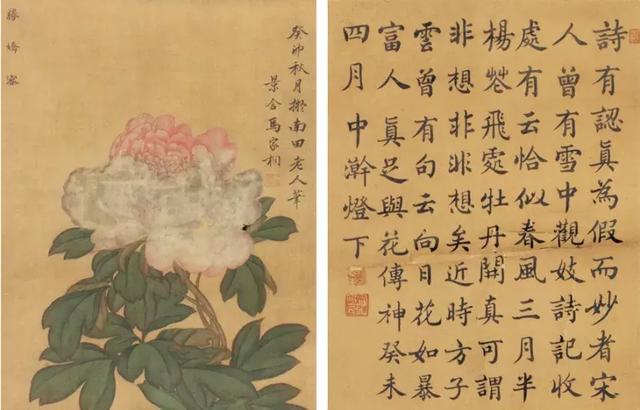 癸卯秋月擬南田老人筆
景合馬家桐
勝嬌容
詩有認眞為假而妙者宋
人曾有雪中觀妓詩記收
處有云恰似春風三月半
楊花飛處牡丹開真可謂
非想非非想矣近時方子
雲曾有句云向日花如暴
富人眞足與花傳神癸未
四月中澣燈下